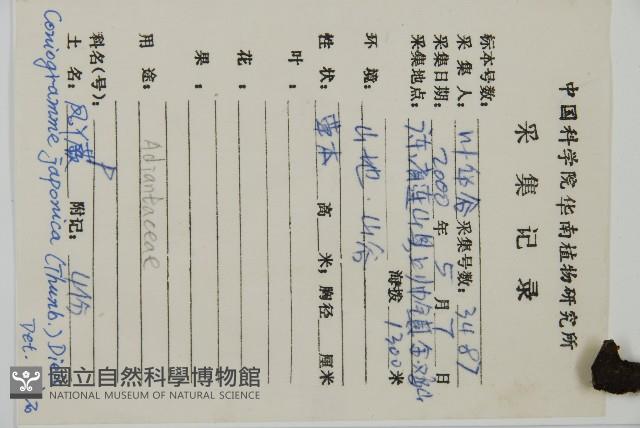 中国科学院华南植物研究所
采集记录
标本号数:
采集人: 叶华谷 采集号数: 3487
采集日期: 2000 年 5 月 7 日
采集地点:
海拨 1300 米
环境: 山地·山谷
性状: 草本 高 米; 胸径 厘米
叶:
花:
果:
用途: Adiantaceae
科名(号): P
土名: 凤丫蕨 附记:
Coniogramme japonica (Thunb.) Diels
Det.
國立自然科學博物館
NATIONAL MUSEUM OF NATURAL SCIENCE